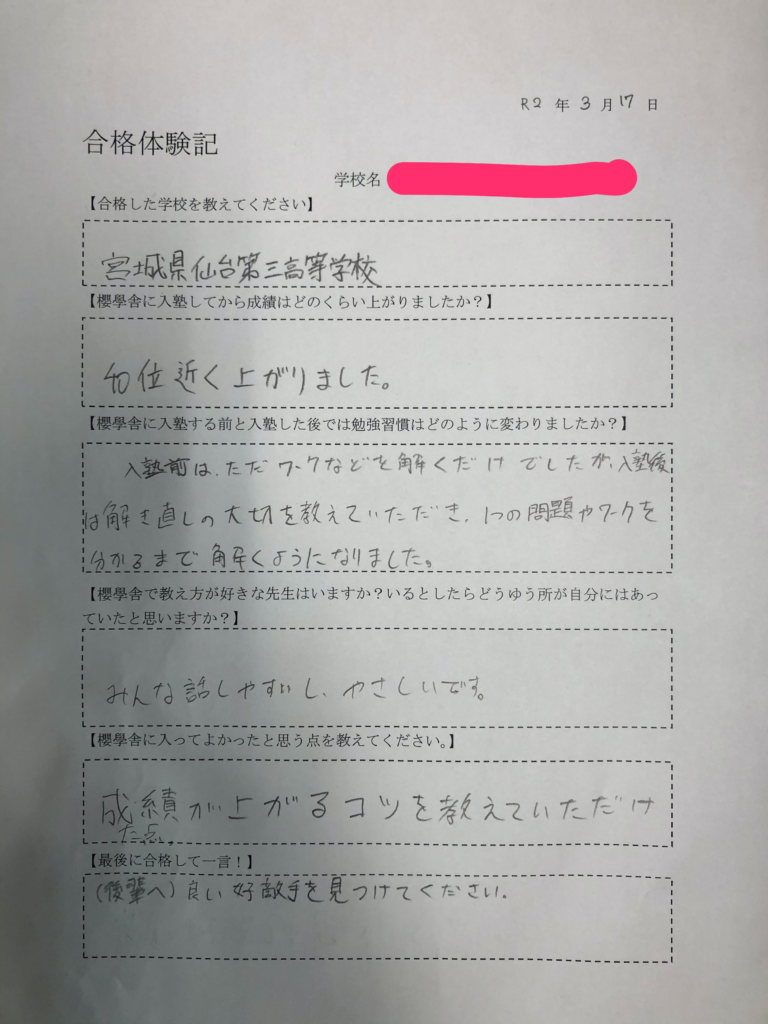 R2 年 3 月 17 日
合格体験記
学校名
【合格した学校を教えてください】
宮城県仙台第三高等学校
【櫻學舎に入塾してから成績はどのくらい上がりましたか？】
40位近く上がりました。
【櫻學舎に入塾する前と入塾した後では勉強習慣はどのように変わりましたか？】
入塾前は、ただワークなどを解くだけでしたが、入塾後
は解き直しの大切を教えていただき、1つの問題やワークを
分かるまで解くようになりました。
【櫻學舎で教え方が好きな先生はいますか？いるとしたらどうゆう所が自分にはあっ
ていたと思いますか？】
みんな話しやすいし、やさしいです。
【櫻學舎に入ってよかったと思う点を教えてください。】
成績が上がるコツを教えていただけ
た点。
【最後に合格して一言！】
(後輩へ) 良い好敵手を見つけてください。